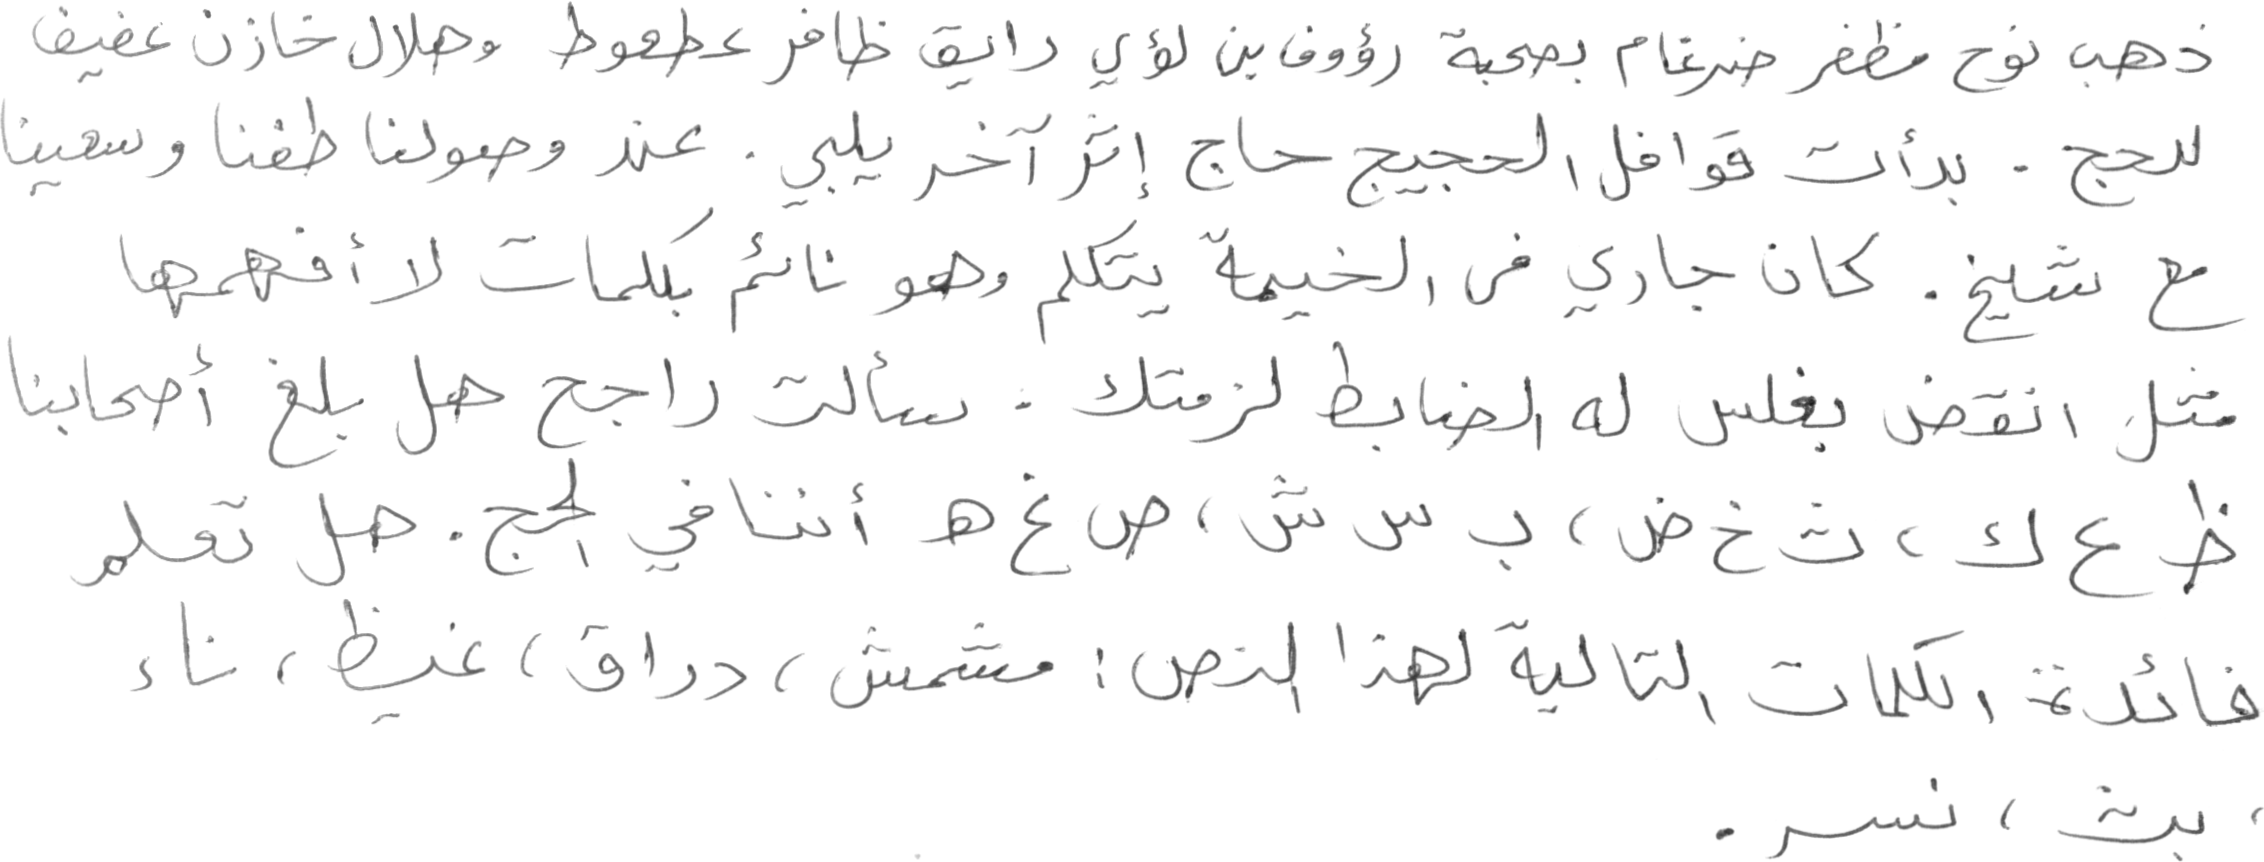 ذهب نوح مظفر ضرغام بصحبة رؤوف بن لؤي رايق ظافر عطعوط وهلال خازن عفيف
للحج . بدأت قوافل الحجيج حاج إثر آخر يلبي . عند وصولنا طفنا وسعينا
مع شيخ . كان جاري في الخيمة يتكلم وهو نائم بكلمات لا أفهمها
مثل انقض بغلس له الضابط لزمتك . سألت راجح هل بلغ أصحابنا
ظ ع ك ، ث خ ض ، ب س ش ، ص غ ه أننا في الحج . هل تعلم
فائدة الكلمات التالية لهذا النص : مشمش ، دراق ، غيظ ، ناء
، بث ، نسر .